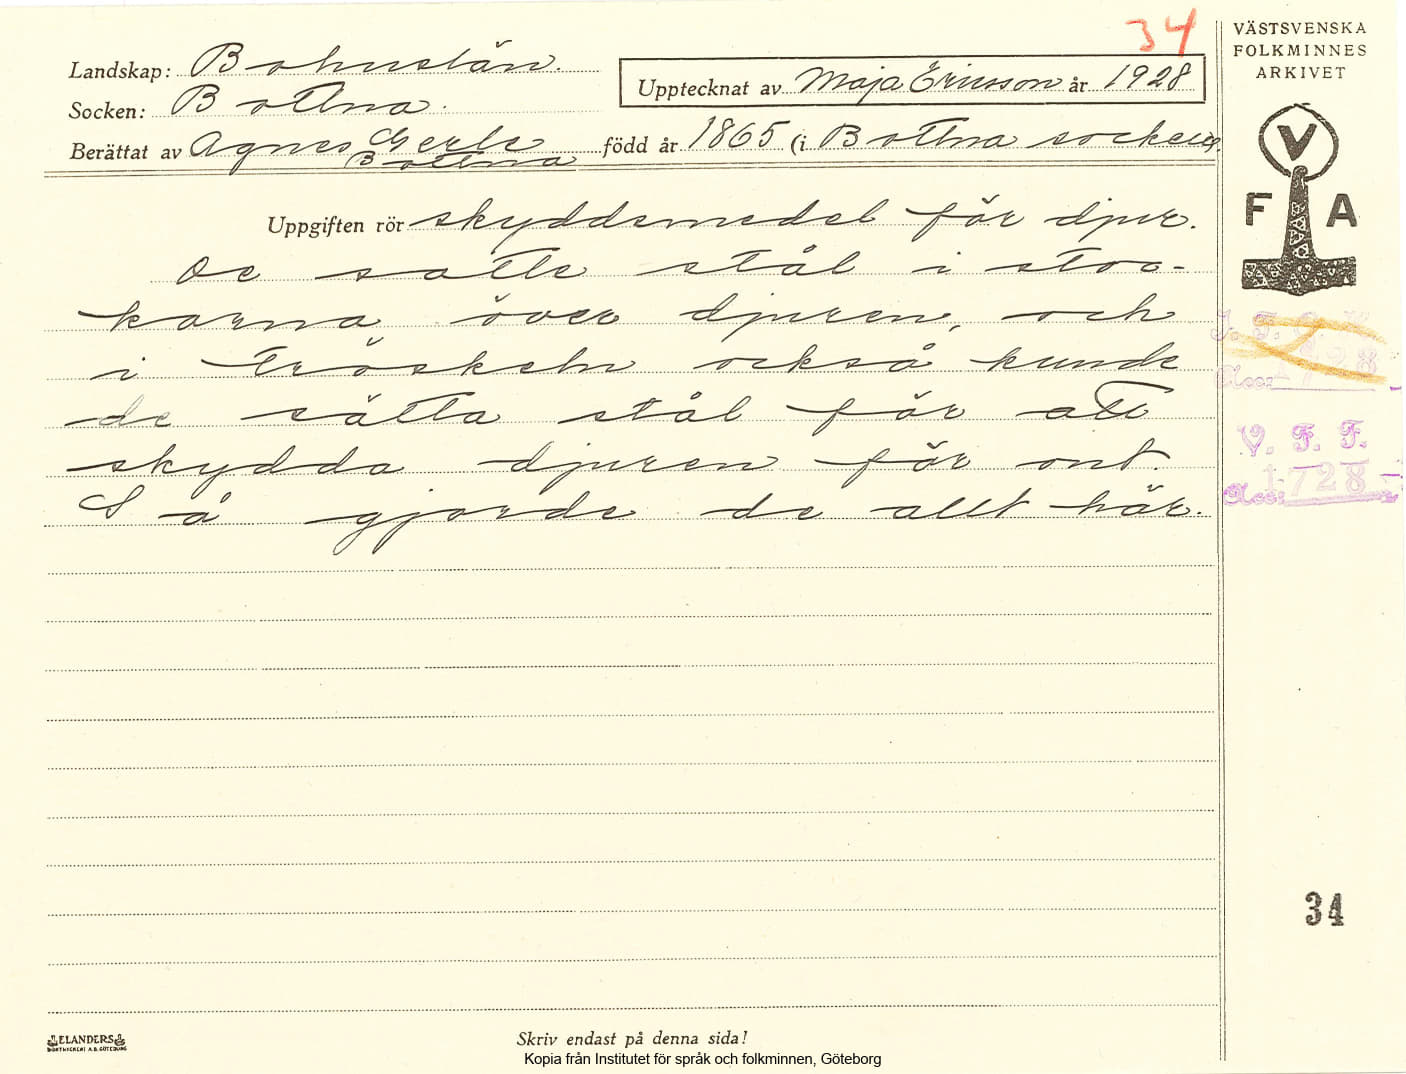 34
VÄSTSVENSKA
FOLKMINNES
ARKIVET
Landskap: Bohuslän.
Upptecknat av Maja Ericsson år 1928
Socken: Bottna.
Berättat av Agnes Gerle född år 1865 (i Bottna socken).
Bottna
V
F A
Uppgiften rör skyddsmedel för djur.
De satte stål i stoc-
karna över djuren, och
i tröskeln också kunde
de sätta stål för att
skydda djuren för ont.
Så gjorde de allt här.
V. F. F.
Acc: 1728
34
ELANDERS
BOKTRYCKERI A.B. GÖTEBORG
Skriv endast på denna sida!
Kopia från Institutet för språk och folkminnen, Göteborg